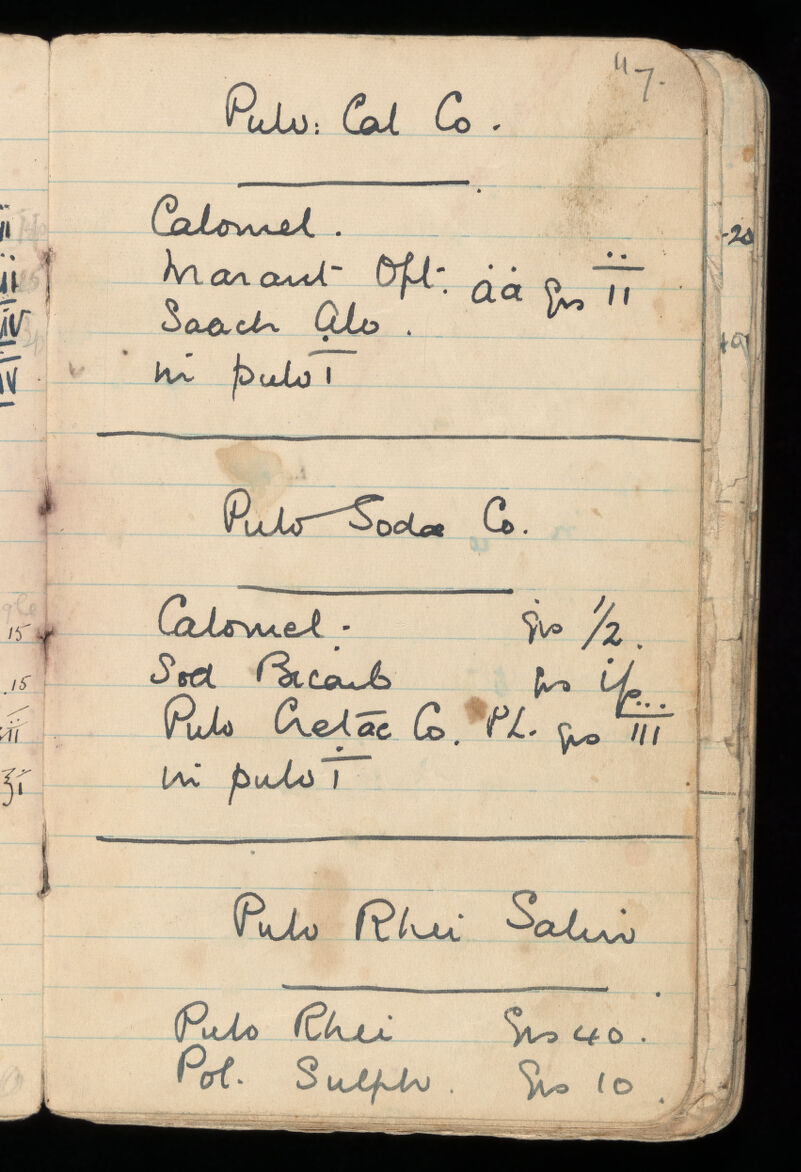 "7.
Pulv: Cal Co.
Calomel.
Marant Opt: āā grs ii
Sacch Alb.
in pulv i
Pulv Sodae Co.
Calomel. grs 1/2.
Sod Bicarb grs ifs
Pulv Cretae Co. P.L. grs iii
in pulv i
Pulv Rhei Salin
Pulv Rhei Grs 40.
Pot. Sulph. Grs 10.
ii
iii
iv
iv
15
.15
ii
ʒi
-20